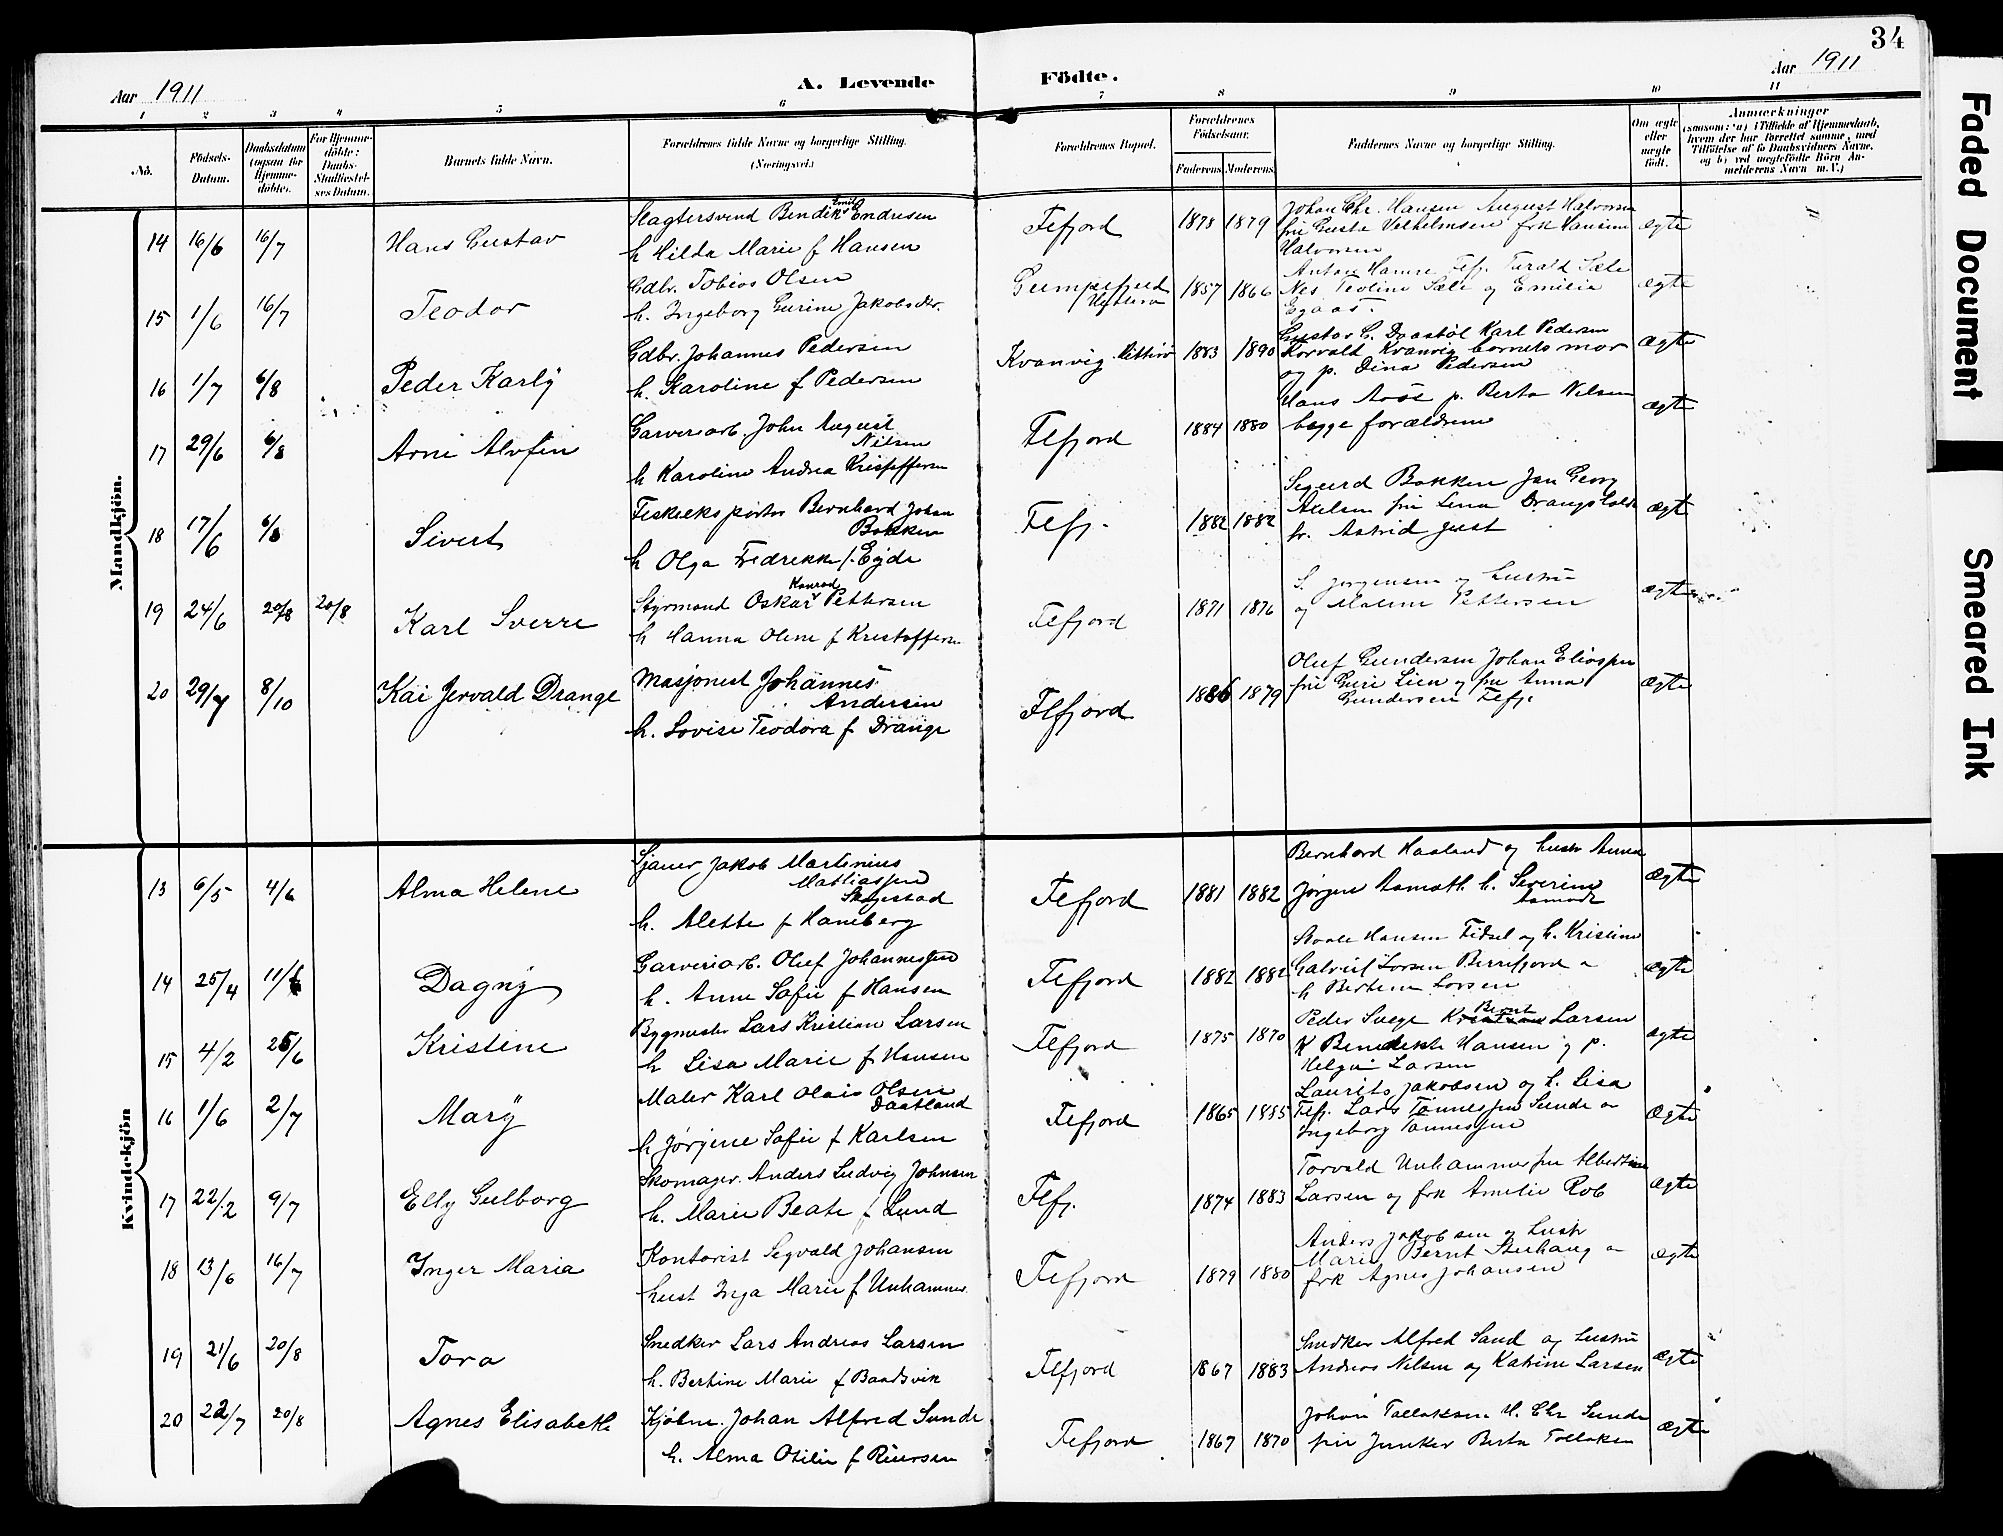 34
Aar 1911
A. Levende Födte.
Aar 1911
1 2 3 4 5 6 7 8 9 10 11
No.
Födsels-Datum.
Daabsdatum (ogsaa for Hjemme-döbte).
For Hjemme-döbte: Daabs-Stadfæstel-ses Datum.
Barnets fulde Navn.
Forældrenes fulde Navne og borgerlige Stilling. (Næringsvei.)
Forældrenes Bopæl.
Forældrenes Födselsaar.
Faderens Moderens
Faddernes Navne og borgerlige Stilling.
Om ægte eller uægte födt.
Anmærkninger
(saasom: a) i Tilfælde af Hjemmedaab, hvem der har forrettet samme, med Tilföielse af to Daabsvidners Navne, og b) ved uægtefödte Börn An-melderens Navn m.V.)
Mandkjön.
14 16/6 16/7 Hans Gustav
Slagtersvend Bendik Emil Endresen
h Hilda Marie f Hansen
Flefjord 1878 1879
Johan Chr. Hansen August Halvorsen
fru Gusta Vilhelmsen frk Hansine
Halvorsen
ægte
15 1/6 16/7 Teodor
Gdbr. Tobias Olsen
h. Ingeborg Gurine Jakobsdtr.
1857 1866
Nes Teoline Sæle og Emilia
ægte
16 1/7 6/8 Peder Karly
Gdbr. Johannes Pedersen
h. Karoline f Pedersen
Kvanvig Hitterø 1883 1890
Gustav G. Daastøl Karl Pedersen
Korvald Kvanvig barnets mor
og p. Dina Pedersen
ægte
17 29/6 6/8 Arne Alvfin
Garveriarb. John August
Nilsen
h Karoline Andrea Kristoffersen
Flefjord 1884 1880
Hans Aase p. Berta Nilsen
begge forældrene
ægte
18 17/6 6/8 Sivert
Fiskeeksportør Bernhard Johan
Bakken
h Olga Fredrekke f. Eyde
Flefj. 1882 1882
Sigurd Bakken Jan Georg
fru Lena Drangsholt
fr. Astrid Just
ægte
19 24/6 20/8 20/8 Karl Sverre
Styrmand Oskar Konrad Pettersen
h Hanna Oline f Kristoffersen
Flefjord 1871 1876
S. Jørgensen og hustru
og Maline Pettersen
ægte
20 29/7 8/10 Kåi Jervald Drange
Masjonest Johannes
Andersen
h. Lovise Teodora f Drange
Flefjord 1886 1879
Oluf Gundersen Johan Eliassen
fru Guri Lien og fru Anna
Gundersen Flefj.
ægte
Kvindekjön
13 6/5 4/6 Alma Helene
Sjauer Jakob Martinius
Mathiassen
Skogestad
h. Alette f Haneberg
Flefjord 1881 1882
Bernhard Haaland og hustr Anna
Jørgen Aamoth h. Severine
Aamodt
ægte
14 25/4 11/6 Dagny
Garveriarb. Oluf Johannessen
h. Anne Sofie f Hansen
Flefjord 1882 1882
Staale Hansen Fidsel og h. Kristine
Gabriel Larsen Berrefjord
h Bertine Larsen
ægte
15 4/2 25/6 Kristine
Bygmester Lars Kristian Larsen
h Lisa Marie f Hansen
Flefjord 1875 1870
Peder Svege Bernt Larsen
K Benedikte Hansen og p.
Helga Larsen
ægte
16 1/6 2/7 Mary
Maler Karl Olais Olsen
Daatland
h Jørjine Sofie f Karlsen
Flefjord 1865 1885
Laurits Jakobsen og h. Lisa
Flefj. Lars Tønnessen Sunde
Ingeborg Tønnessen
ægte
17 22/2 9/7 Elly Gulborg
Skomager. Anders Ludvig Johnsen
h. Marie Beate f Lund
Flefj. 1874 1883
Torvald Unhammer fru Albertine
Larsen og frk Amelie Rob
ægte
18 13/6 16/7 Inger Maria
Kontorist Sigvald Johansen
hust Inga Marie f Unhammer
Flefjord 1879 1880
Anders Jakobsen og hustr
Marie Bernt Stenhaug
frk Agnes Johansen
ægte
19 21/6 20/8 Tora
Snedker Lars Andreas Larsen
h. Bertine Marie f Baadsvik
Flefjord 1867 1883
Snedker Alfred Sand og hustru
Andreas Nilsen og Katrine Larsen
ægte
20 22/7 20/8 Agnes Elisabeth
Kjøbm. Johan Alfred Sunde
h. Alma Otilie f Riversen
Flefjord 1867 1870
Johan Tollaksen H. Chr Sunde
fru Junker Berta Tollaksen
ægte
Faded Document
Smeared Ink